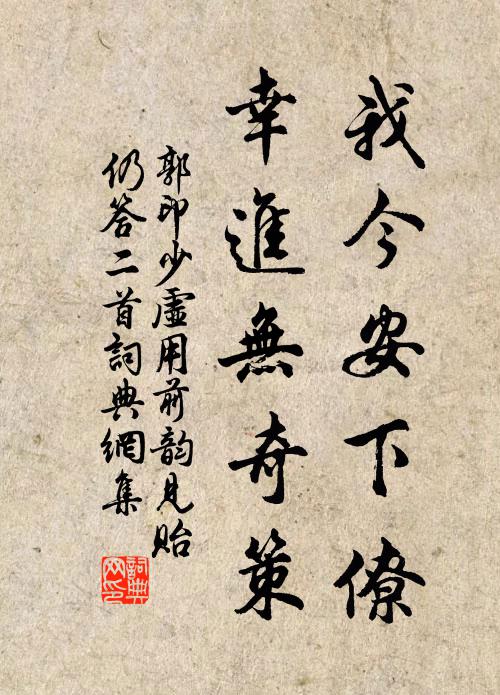 我今安下僚
幸進無奇策
郭印少虛用前韵見貽
仍答二首詞典網集
詞典
网印